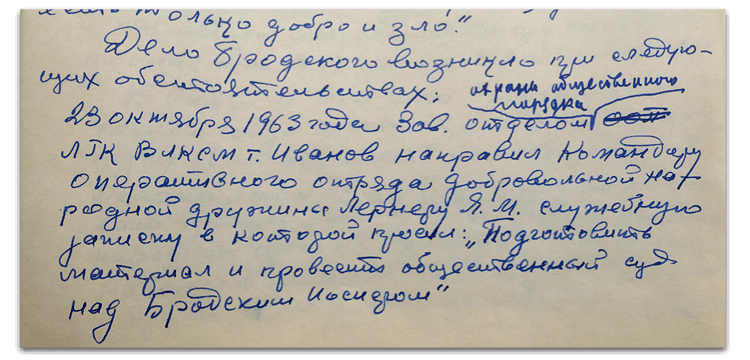 есть только добро и зло."
Дело Бродского возникло при следую-
щих обстоятельствах:
охраны общественного
порядка
23 октября 1963 года Зав. отделом
ЛГК ВЛКСМ т. Иванов направил Командиру
оперативного отряда добровольной на-
родной дружины Лернеру Я. М. служебную
записку в которой просил: „Подготовить
материал и провести общественный суд
над Бродским Иосифом"